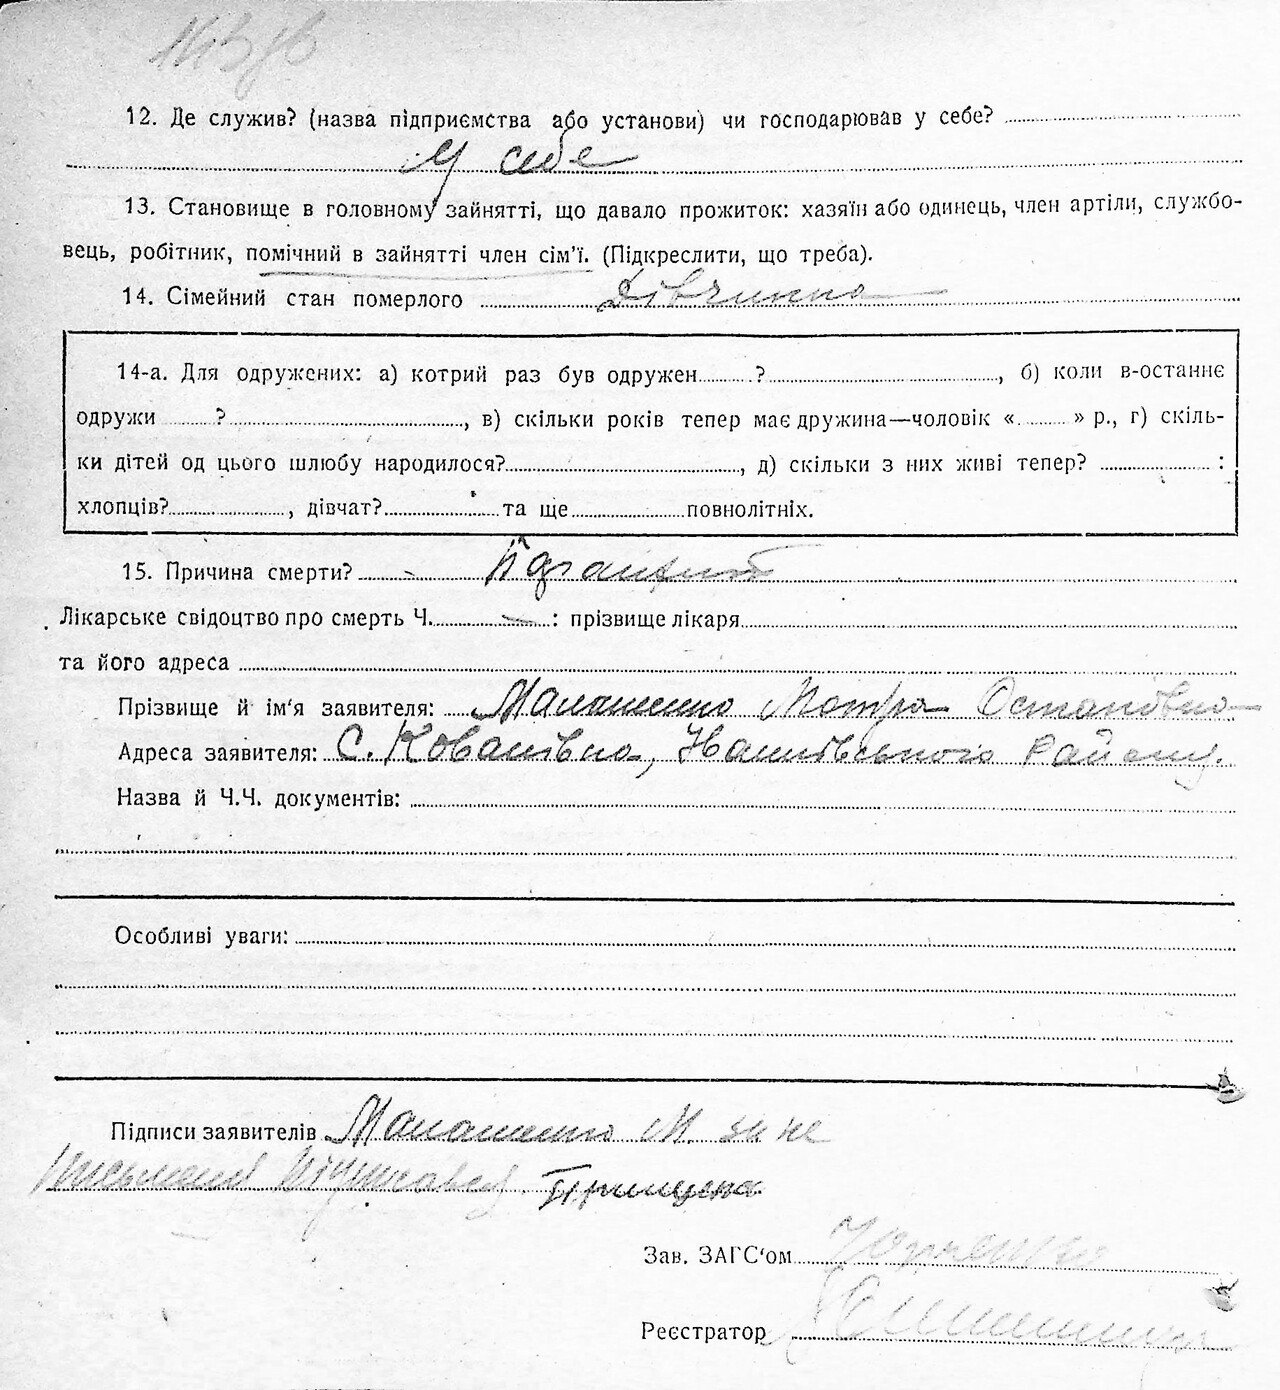 12. Де служив? (назва підприємства або установи) чи господарював у себе?
У себе
13. Становище в головному зайнятті, що давало прожиток: хазяїн або одинець, член артіли, службо-
вець, робітник, помічний в зайнятті член сім’ї. (Підкреслити, що треба).
14. Сімейний стан померлого Дівчинка
14-а. Для одружених: а) котрий раз був одружен ? , б) коли в-останнє
одружи ? , в) скільки років тепер має дружина—чоловік « » р., г) скіль-
ки дітей од цього шлюбу народилося? , д) скільки з них живі тепер? :
хлопців? , дівчат? та ще повнолітніх.
15. Причина смерти?
Лікарське свідоцтво про смерть Ч. — : прізвище лікаря
та його адреса
Прізвище й ім‘я заявителя: Малашенко Мотря Остапівна
Адреса заявителя: С. Ковалівка, району.
Назва й Ч.Ч. документів:
Особливі уваги:
Підписи заявителів Малашенко М. за не
письмену підписався
Зав. ЗАГС‘ом
Реєстратор